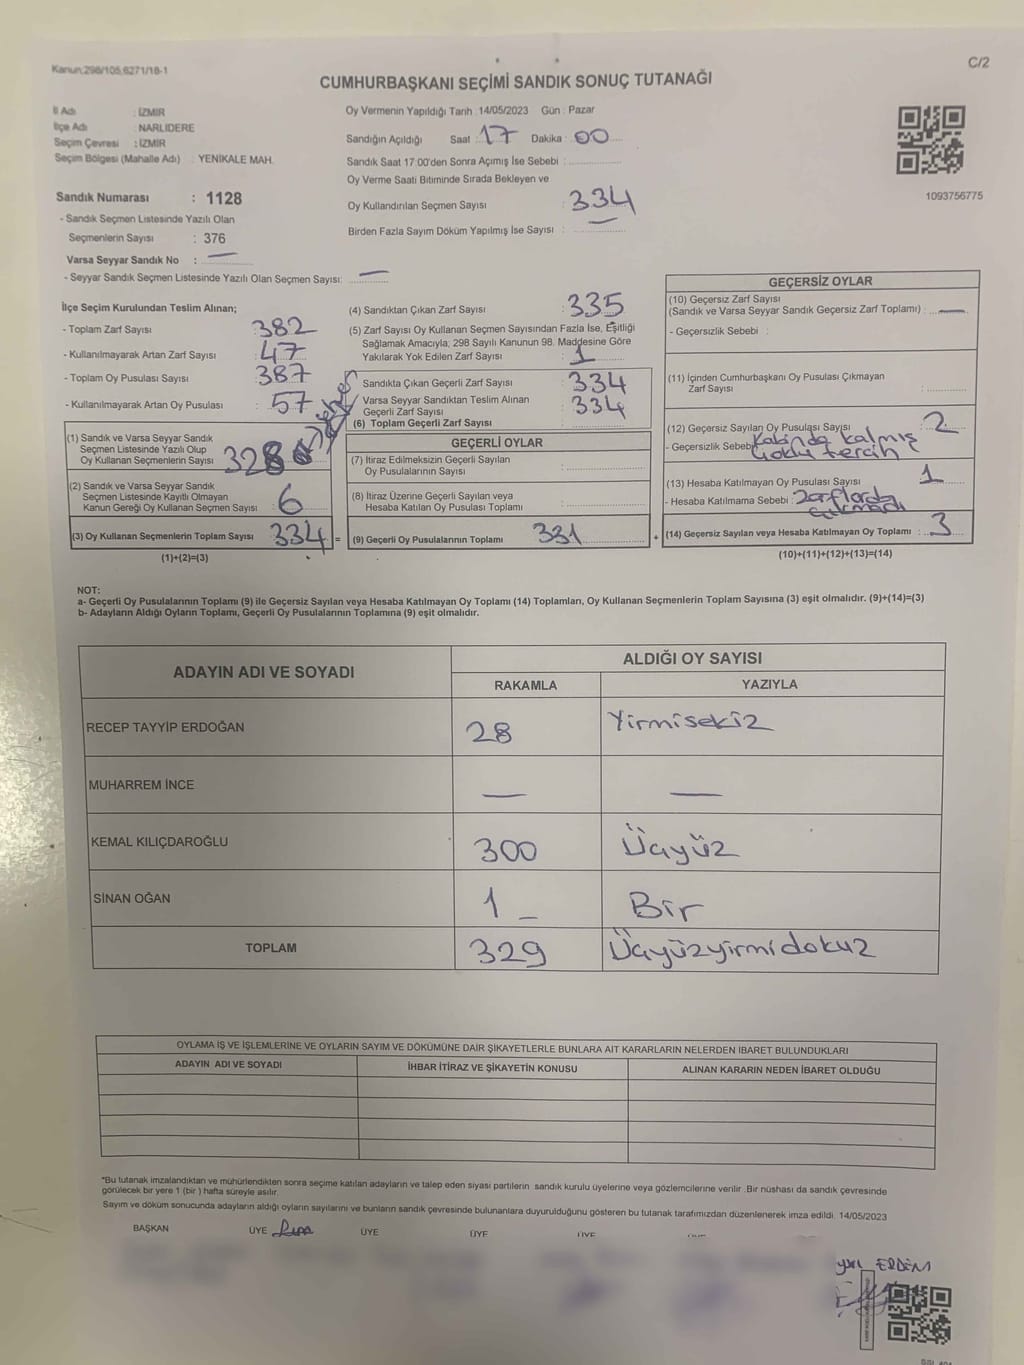 Kanun:298/105,6271/18-1
C/2
CUMHURBAŞKANI SEÇİMİ SANDIK SONUÇ TUTANAĞI
İl Adı : İZMİR
İlçe Adı : NARLIDERE
Seçim Çevresi : İZMİR
Seçim Bölgesi (Mahalle Adı) : YENİKALE MAH.
Sandık Numarası : 1128
- Sandık Seçmen Listesinde Yazılı Olan
Seçmenlerin Sayısı : 376
Varsa Seyyar Sandık No : —
- Seyyar Sandık Seçmen Listesinde Yazılı Olan Seçmen Sayısı: —
Oy Vermenin Yapıldığı Tarih :14/05/2023 Gün : Pazar
Sandığın Açıldığı Saat : 17 Dakika : 00
Sandık Saat 17:00'den Sonra Açımış İse Sebebi :
Oy Verme Saati Bitiminde Sırada Bekleyen ve
Oy Kullandırılan Seçmen Sayısı : 334
Birden Fazla Sayım Döküm Yapılmış İse Sayısı : —
1093756775
İlçe Seçim Kurulundan Teslim Alınan;
- Toplam Zarf Sayısı : 382
- Kullanılmayarak Artan Zarf Sayısı : 47
- Toplam Oy Pusulası Sayısı : 387
- Kullanılmayarak Artan Oy Pusulası : 57
(1) Sandık ve Varsa Seyyar Sandık
Seçmen Listesinde Yazılı Olup
Oy Kullanan Seçmenlerin Sayısı 328
(2) Sandık ve Varsa Seyyar Sandık
Seçmen Listesinde Kayıtlı Olmayan
Kanun Gereği Oy Kullanan Seçmen Sayısı : 6
(3) Oy Kullanan Seçmenlerin Toplam Sayısı : 334 =
(1)+(2)=(3)
(4) Sandıktan Çıkan Zarf Sayısı : 335
(5) Zarf Sayısı Oy Kullanan Seçmen Sayısından Fazla İse, Eşitliği
Sağlamak Amacıyla, 298 Sayılı Kanunun 98. Maddesine Göre
Yakılarak Yok Edilen Zarf Sayısı : 1
Sandıkta Çıkan Geçerli Zarf Sayısı : 334
Varsa Seyyar Sandıktan Teslim Alınan
Geçerli Zarf Sayısı : 334
(6) Toplam Geçerli Zarf Sayısı :
GEÇERLİ OYLAR
(7) İtiraz Edilmeksizin Geçerli Sayılan
Oy Pusulalarının Sayısı :
(8) İtiraz Üzerine Geçerli Sayılan veya
Hesaba Katılan Oy Pusulası Toplamı :
(9) Geçerli Oy Pusulalarının Toplamı : 331 +
GEÇERSİZ OYLAR
(10) Geçersiz Zarf Sayısı
(Sandık ve Varsa Seyyar Sandık Geçersiz Zarf Toplamı) : —
- Geçersizlik Sebebi :
(11) İçinden Cumhurbaşkanı Oy Pusulası Çıkmayan
Zarf Sayısı :
(12) Geçersiz Sayılan Oy Pusulası Sayısı : 2
- Geçersizlik Sebebi Kabinde kalmış
Çoklu tercih
(13) Hesaba Katılmayan Oy Pusulası Sayısı : 1
- Hesaba Katılmama Sebebi : Zarflarda
çıkmadı
(14) Geçersiz Sayılan veya Hesaba Katılmayan Oy Toplamı : 3
(10)+(11)+(12)+(13)=(14)
NOT:
a- Geçerli Oy Pusulalarının Toplamı (9) ile Geçersiz Sayılan veya Hesaba Katılmayan Oy Toplamı (14) Toplamları, Oy Kullanan Seçmenlerin Toplam Sayısına (3) eşit olmalıdır. (9)+(14)=(3)
b- Adayların Aldığı Oyların Toplamı, Geçerli Oy Pusulalarının Toplamına (9) eşit olmalıdır.
ADAYIN ADI VE SOYADI
ALDIĞI OY SAYISI
RAKAMLA YAZIYLA
RECEP TAYYİP ERDOĞAN 28 Yirmisekiz
MUHARREM İNCE — —
KEMAL KILIÇDAROĞLU 300 Üçyüz
SİNAN OĞAN 1 _ Bir
TOPLAM 329 Üçyüzyirmidokuz
OYLAMA İŞ VE İŞLEMLERİNE VE OYLARIN SAYIM VE DÖKÜMÜNE DAİR ŞİKAYETLERLE BUNLARA AİT KARARLARIN NELERDEN İBARET BULUNDUKLARI
ADAYIN ADI VE SOYADI İHBAR İTİRAZ VE ŞİKAYETİN KONUSU ALINAN KARARIN NEDEN İBARET OLDUĞU
*Bu tutanak imzalandıktan ve mühürlendikten sonra seçime katılan adayların ve talep eden siyasi partilerin sandık kurulu üyelerine veya gözlemcilerine verilir .Bir nüshası da sandık çevresinde
görülecek bir yere 1 (bir ) hafta süreyle asılır.
Sayım ve döküm sonucunda adayların aldığı oyların sayılarını ve bunların sandık çevresinde bulunanlara duyurulduğunu gösteren bu tutanak tarafımızdan düzenlenerek imza edildi. 14/05/2023
BAŞKAN ÜYE ÜYE ÜYE ÜYE
ERDEM